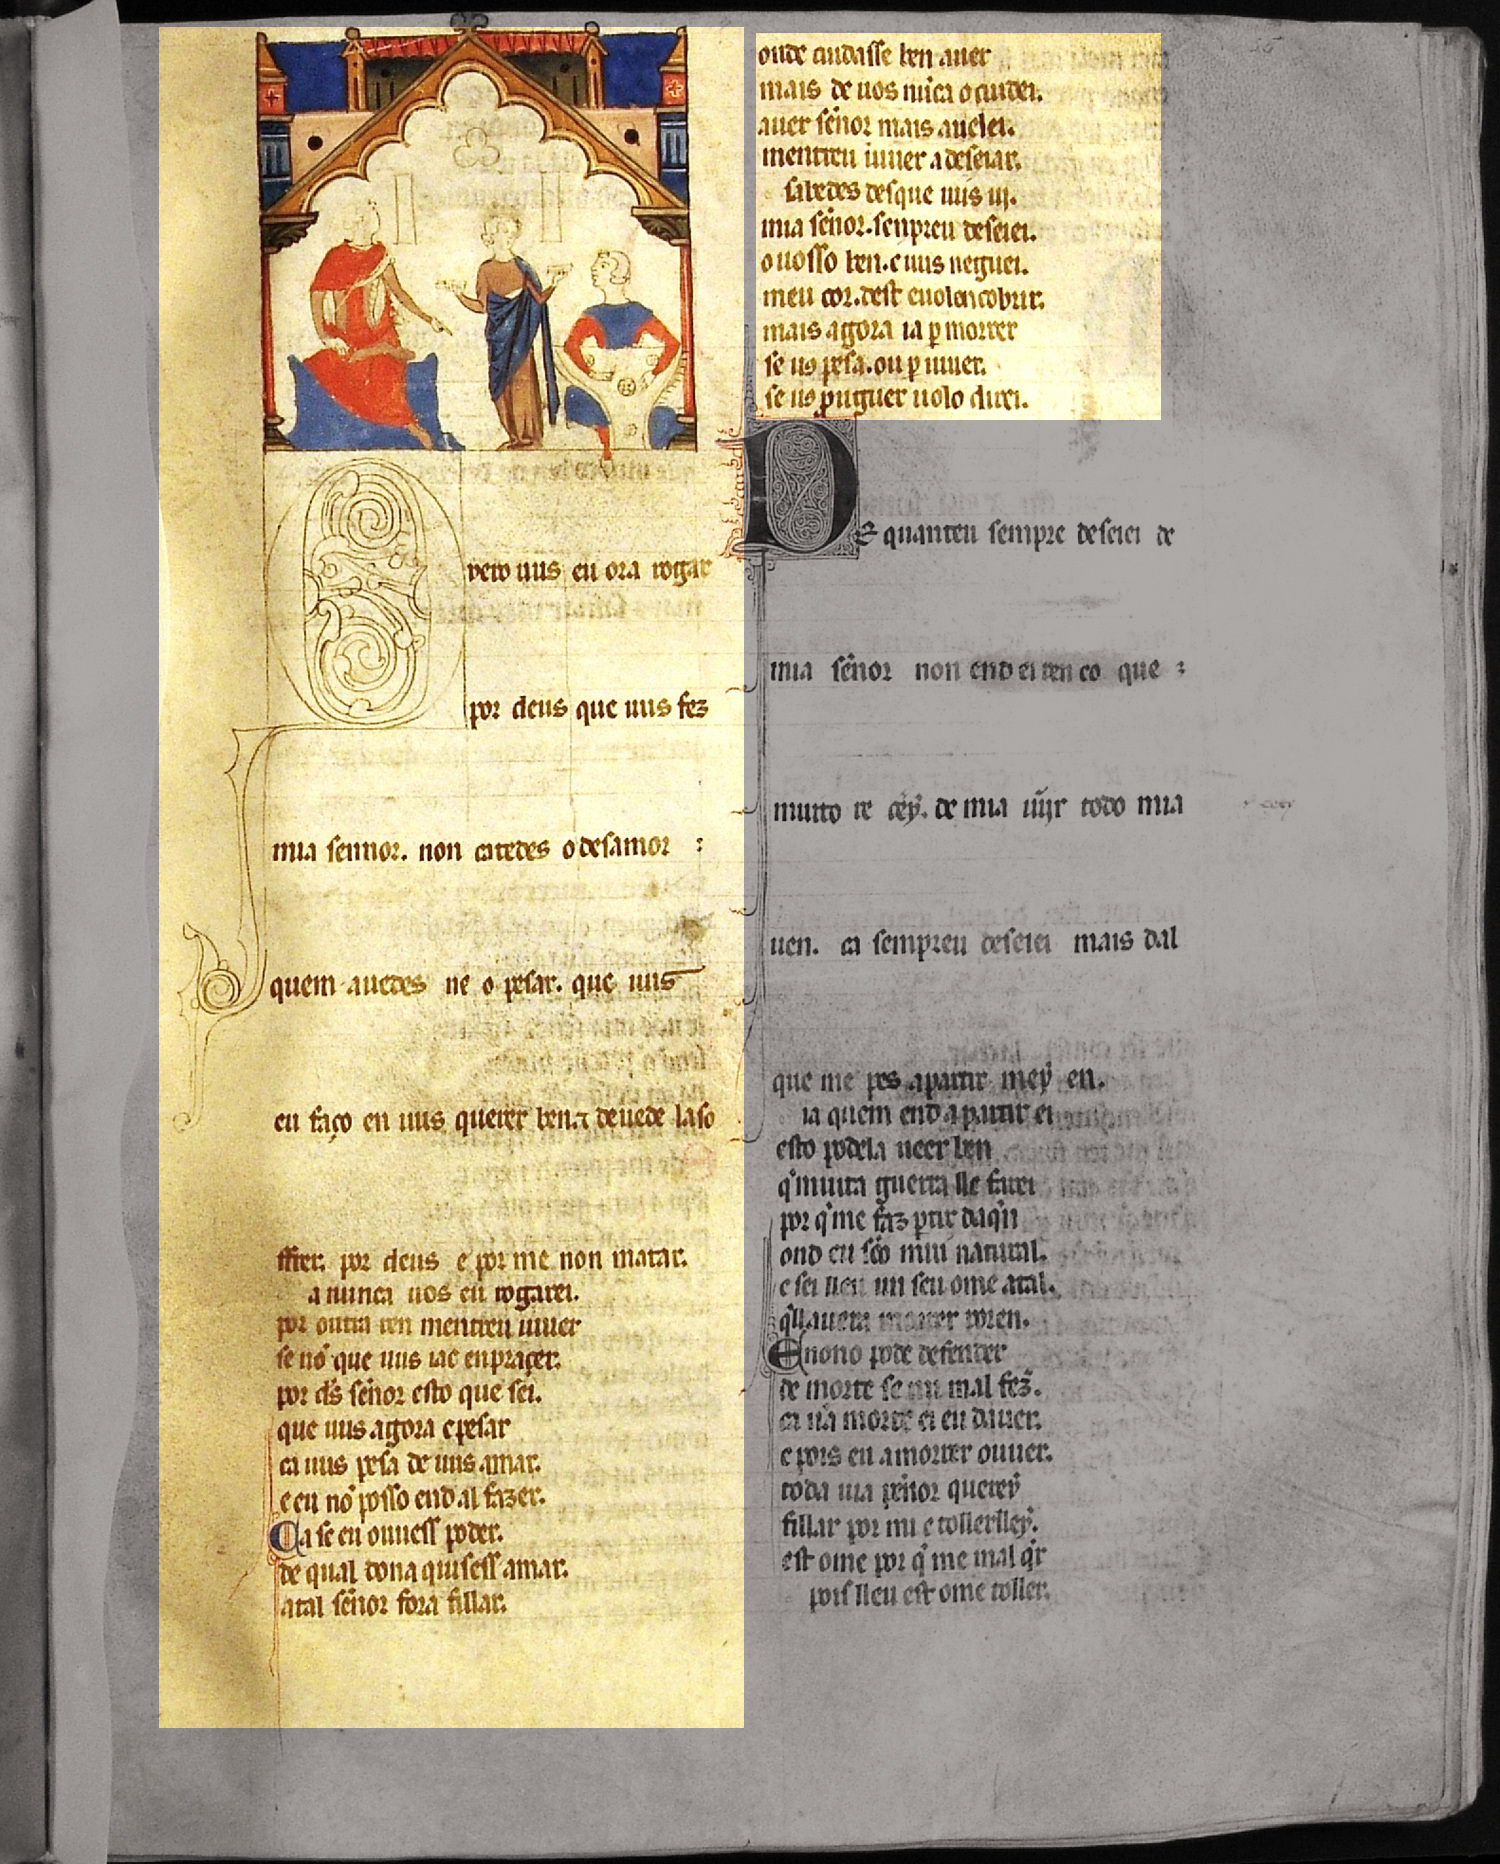 uero uus eu ora rogar
por deus que uus fez
mia sennor. non catedes o desamor :
quem auedes ne o pesar. que uus
eu faço en uus querer ben. ⁊ deuede laso
ffrer. por deus e por me non matar.
a nunca uos eu rogarei.
por outra ren mentreu uiuer
se nõ que uus iac en prazer.
por d̃s sẽnor esto que sei.
que uus agora e pesar
ca uus pesa de uus amar.
e eu nõ posso end al fazer.
Ca se eu ouuess poder.
de qual dona quisess amar.
atal sẽnor fora fillar.
onde cuidasse ben auer
mais de uos nũca o cuidei.
auer sẽnor mais auelei.
mentreu uiuer a deseiar.
sabedes des que uus ui.
mia sẽnor. senpreu deseiei.
o uosso ben. e uus neguei.
meu cor. dest euolencobrir.
mais agora ia p morrer
se uꝯ pesa. ou p uiuer.
se uꝯ prouguer uolo direi.
De quanteu sempre deseiei de
mia sẽnor non end ei ren co que :
muito re cẽy. de mia uĩjr todo mia
uen. ca sempreu deseiei mais dal
que me pes a partir mey en.
ia quem end a partir ei
esto podela ueer ben
q̃ muita guerra lle farei
por q̃ me faz partir daq̃n
ond eu sõo miu natural.
e sei lleu un seu ome atal.
q̃ll auera morrer poren.
E nono pode defender
de morte se un mal fez.
ca ũa morte ei eu dauer.
e pois eu a morrer ouuer.
toda uia pẽnor querey
fillar por mi e tollerlley.
est ome por q̃ me mal q̃r
pois lleu est ome toller.